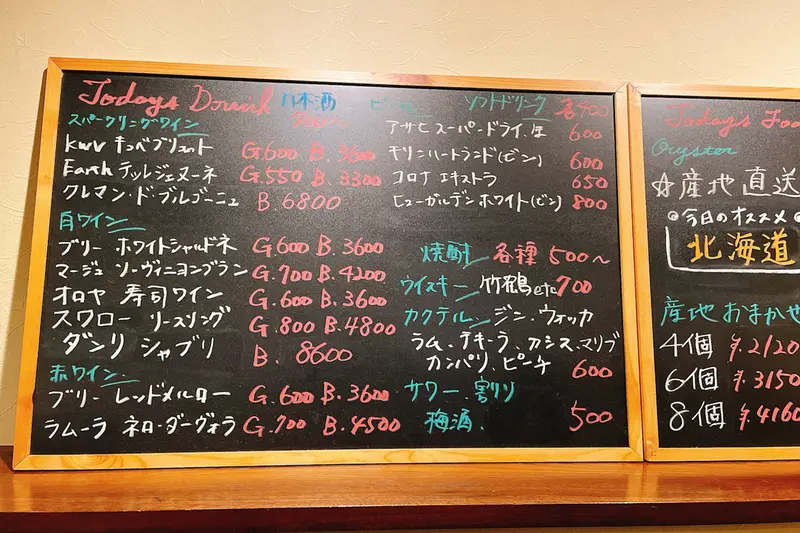 Todays Drink 日本酒
ソフトドリンク 各400
スパークリングワイン
KWV キュベブリュット G.600 B.3600
Earth テッレジェヌーネ G.550 B.3300
クレマン・ド・ブルゴーニュ B.6800
白ワイン
ブリー ホワイトシャルドネ G.600 B.3600
マージュ ソーヴィニヨンブラン G.700 B.4200
オロヤ 寿司ワイン G.600 B.3600
スワロー リースリング G.800 B.4800
ダンリ シャブリ B.8600
赤ワイン
ブリー レッドメルロー G.600 B.3600
ラムーラ ネロ・ダーヴォラ G.700 B.4500
アサヒスーパードライ.生 600
キリンハートランド(ビン) 600
コロナ エキストラ 650
ヒューガルデンホワイト(ビン) 800
焼酎 各種 500～
ウイスキー 竹鶴etc 700
カクテル ジン.ウォッカ
ラム.テキーラ.カシス.マリブ
カンパリ.ピーチ 600
サワー.割り
梅酒. 500
Today's Foo
Oryster
☆産地直送
◎今日のオススメ◎
北海道
産地おまかせ
4個 ¥.2120
6個 ¥.3150
8個 ¥.4160